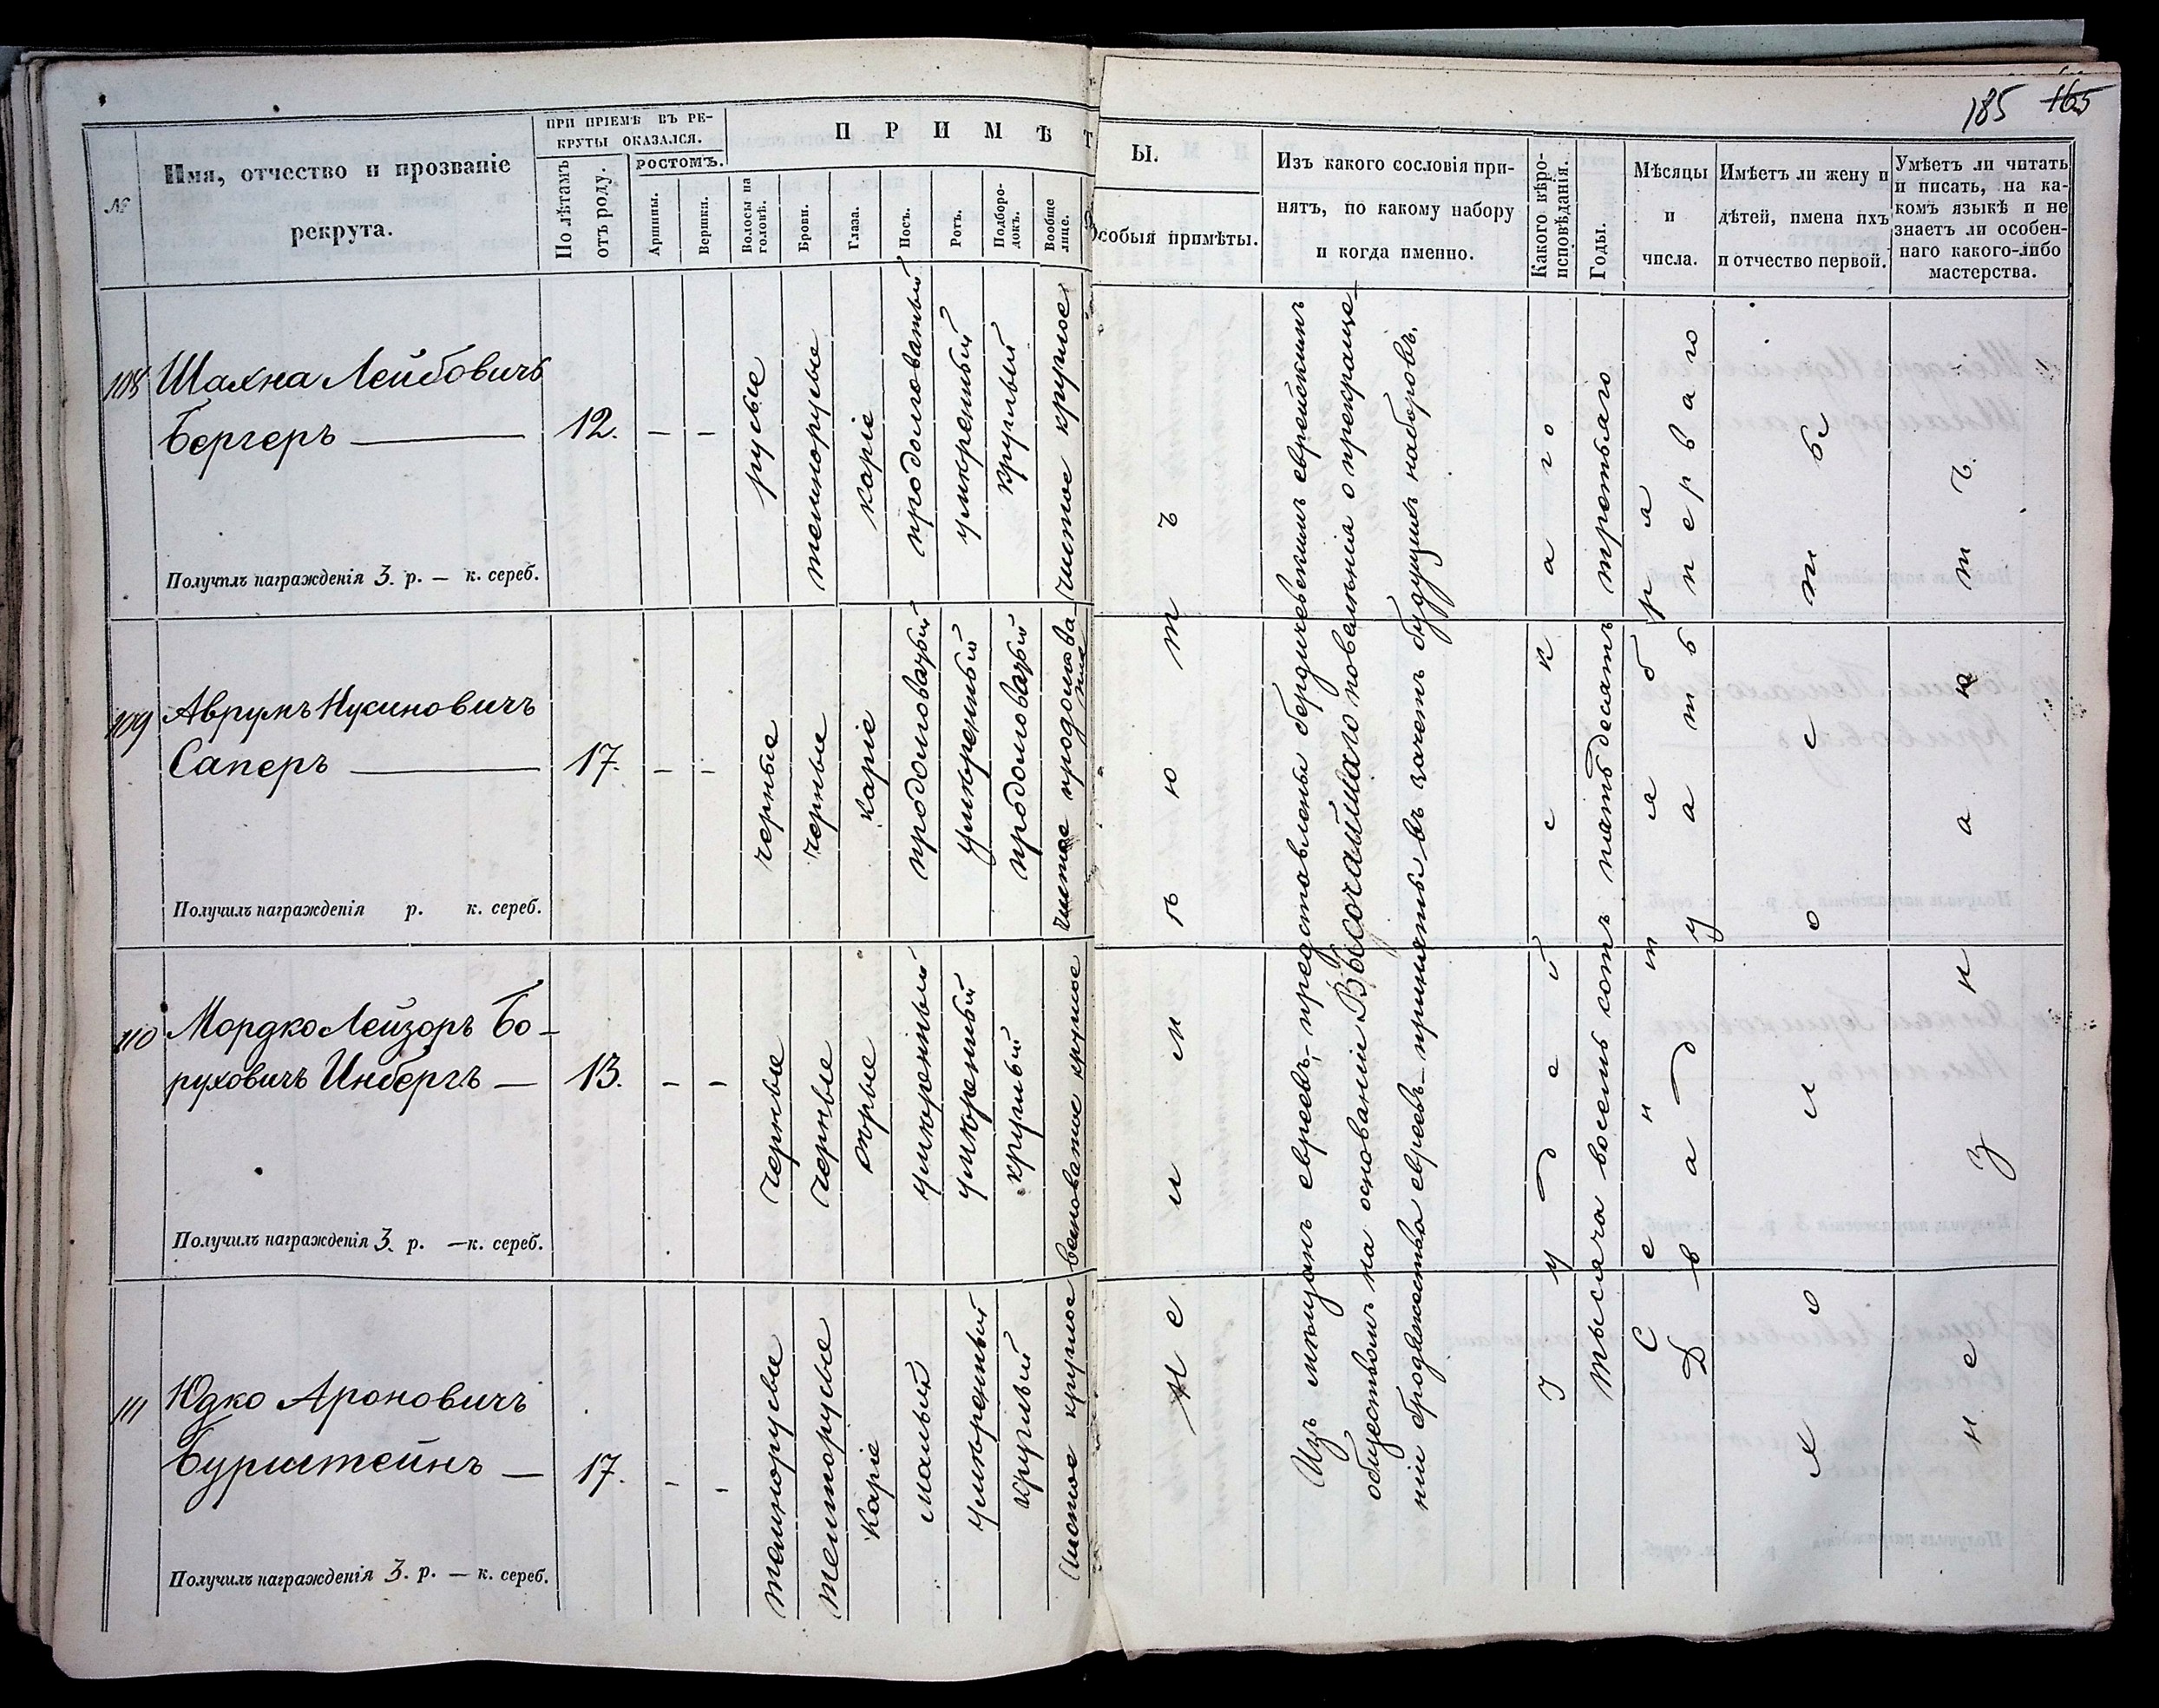 185 165
№
Имя, отчество и прозваніе
рекрута.
ПРИ ПРІЕМѢ ВЪ РЕ-
КРУТЫ ОКАЗАЛСЯ.
По лѣтамъ
отъ роду.
РОСТОМЪ.
Аршины.
Вершки.
П Р И М Ѣ Т
Ы.
Волосы на
головѣ.
Брови.
Глаза.
Носъ.
Ротъ.
Подборо-
докъ.
Вообще
лице.
Особыя примѣты.
Изъ какого сословія при-
нятъ, по какому набору
и когда именно.
Какого вѣро-
исповѣданія.
Годы.
Мѣсяцы
и
числа.
Имѣетъ ли жену и
дѣтей, имена ихъ
и отчество первой.
Умѣетъ ли читать
и писать, на ка-
комъ языкѣ и не
знаетъ ли особен-
наго какого-либо
мастерства.
108
Шахна Лейбовичъ
Бергеръ
12. — —
русые
темнорусые
каріе
продолговатый
умѣренный
круглый
чистое круглое
Получилъ награжденія 3. р. — к. сереб.
109
Аврумъ Нусиновичъ
Саперъ
17. — —
черные
черные
каріе
продолговатый
умѣренный
продолговатый
чистое продолгова-
тое
Получилъ награжденія р. к. сереб.
110
Мордко Лейзоръ Бо-
руховичъ Инбергъ —
13. — —
черные
черные
умѣренный
умѣренный
круглый
весноватое круглое
Получилъ награжденія 3. р. — к. сереб.
111
Юдко Ароновичъ
Бурштейнъ —
17. - -
темнорусые
темнорусые
каріе
малый
умѣренный
круглый
чистое круглое
Получилъ награжденія 3. р. — к. сереб.
не имѣютъ
Изъ мѣщанъ евреевъ, представлены бердичевскимъ еврейскимъ
обществомъ на основаніи Высочайшаго повелѣнія о прекраще-
ніи бродяжества евреевъ — приняты въ зачетъ будущихъ наборовъ.
Іудейскаго
тысяча восемь сотъ пятьдесятъ третьяго
Сентября
Двадцать перваго
холосты
не знаютъ